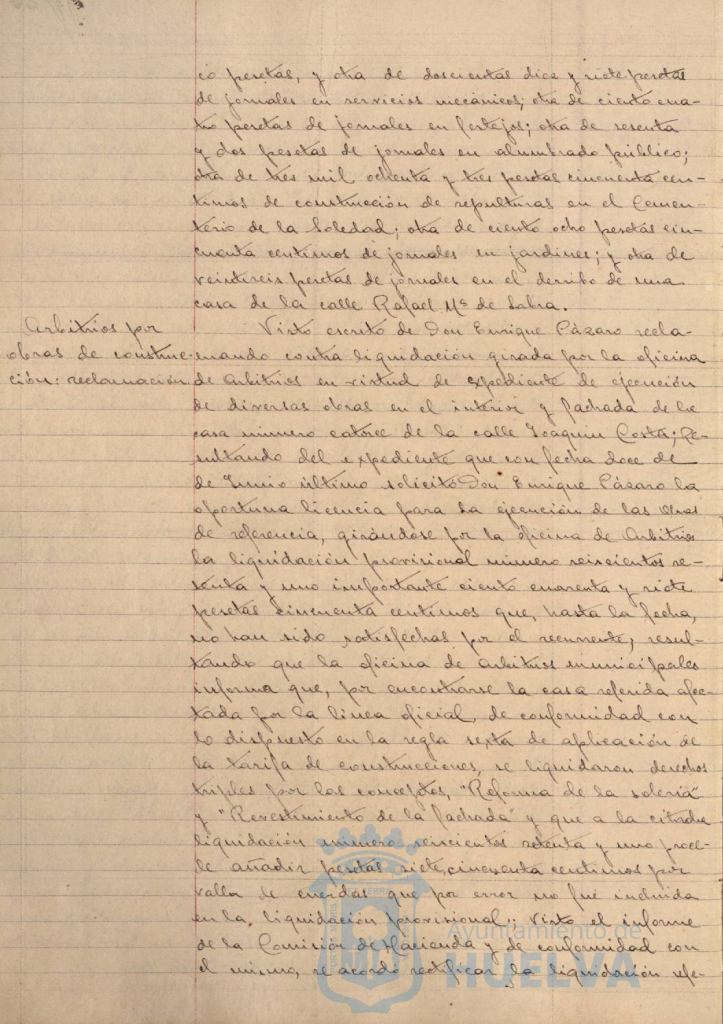 co pesetas, y otra de doscientas diez y siete pesetas
de jornales en servicios mecánicos; otra de ciento cua-
tro pesetas de jornales en festejos; otra de sesenta
y dos pesetas de jornales en alumbrado público;
otra de tres mil ochenta y tres pesetas cincuenta cen-
timos de construcción de sepulturas en el Cemen-
terio de la Soledad; otra de ciento ocho pesetas cin-
cuenta centimos de jornales en jardines; y otra de
veintiseis pesetas de jornales en el derribo de una
casa de la calle Rafael Mª de Labra.
Arbitrios por
obras de construc-
ción: reclamación
Visto escrito de Don Enrique Pázaro recla-
mando contra liquidación girada por la oficina
de Arbitrios en virtud de expediente de ejecución
de diversas obras en el interior y fachada de la
casa número catorce de la calle Joaquin Costa; Re-
sultando del expediente que con fecha doce de
de Junio último solicitó Don Enrique Pázaro la
oportuna licencia para la ejecución de las obras
de referencia, girándose por la oficina de Arbitrios
la liquidación provisional número seiscientos se-
tenta y uno importante ciento cuarenta y siete
pesetas cincuenta centimos que, hasta la fecha,
no han sido satisfechas por el recurrente; resul-
tando que la oficina de arbitrios municipales
informa que, por encontrarse la casa referida afec-
tada por la linea oficial, de conformidad con
lo dispuesto en la regla sexta de aplicación de
la tarifa de construcciones, se liquidaron derechos
triples por los conceptos, "Reforma de la solería"
y "Revestimiento de la fachada" y que a la citada
liquidación número seiscientos setenta y uno proce-
de añadir pesetas siete, cincuenta centimos por
valla de cuerdas que por error no fué incluida
en la liquidación provisional; Visto el informe
de la Comisión de Hacienda y de conformidad con
el mismo, se acordó rectificar la liquidación refe-
Ayuntamiento de
HUELVA